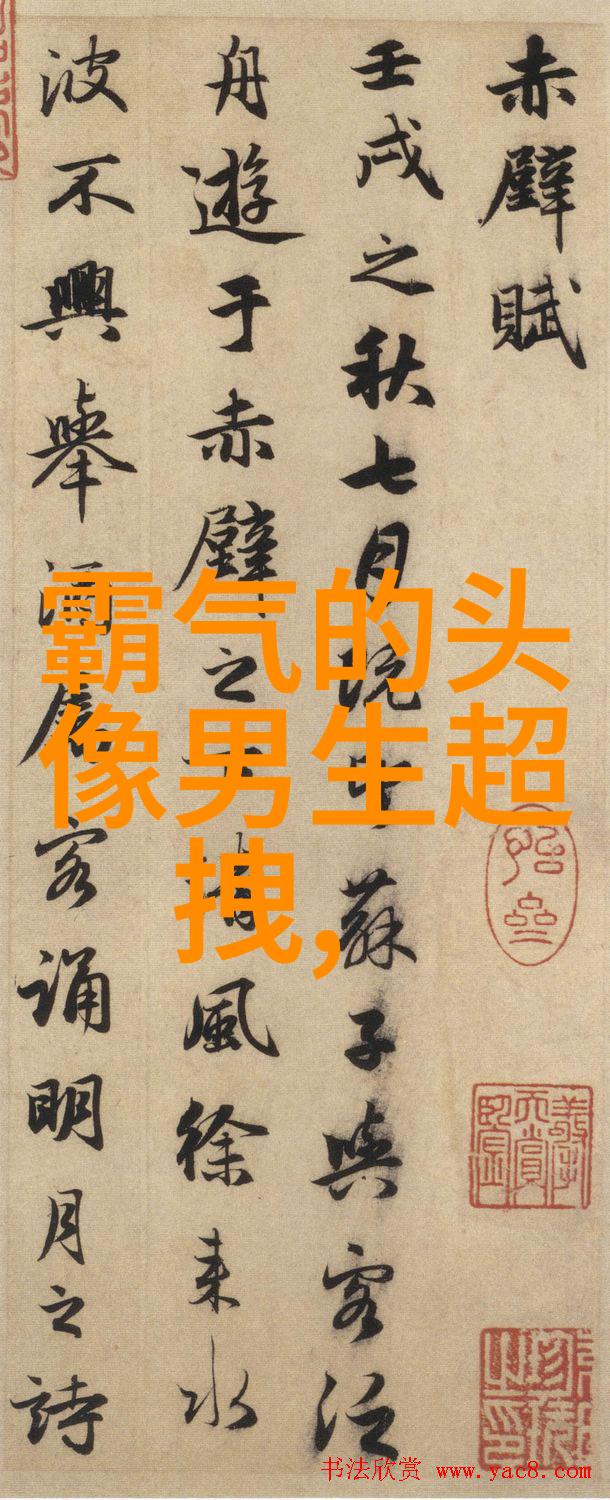 赤壁賦
壬戌之秋七月既蘇子與客泛
舟遊于赤壁之清風徐来水
波不興舉酒屬客誦明月之詩
霸气的头
像男生超
拽,
书法欣赏 www.yac8.com